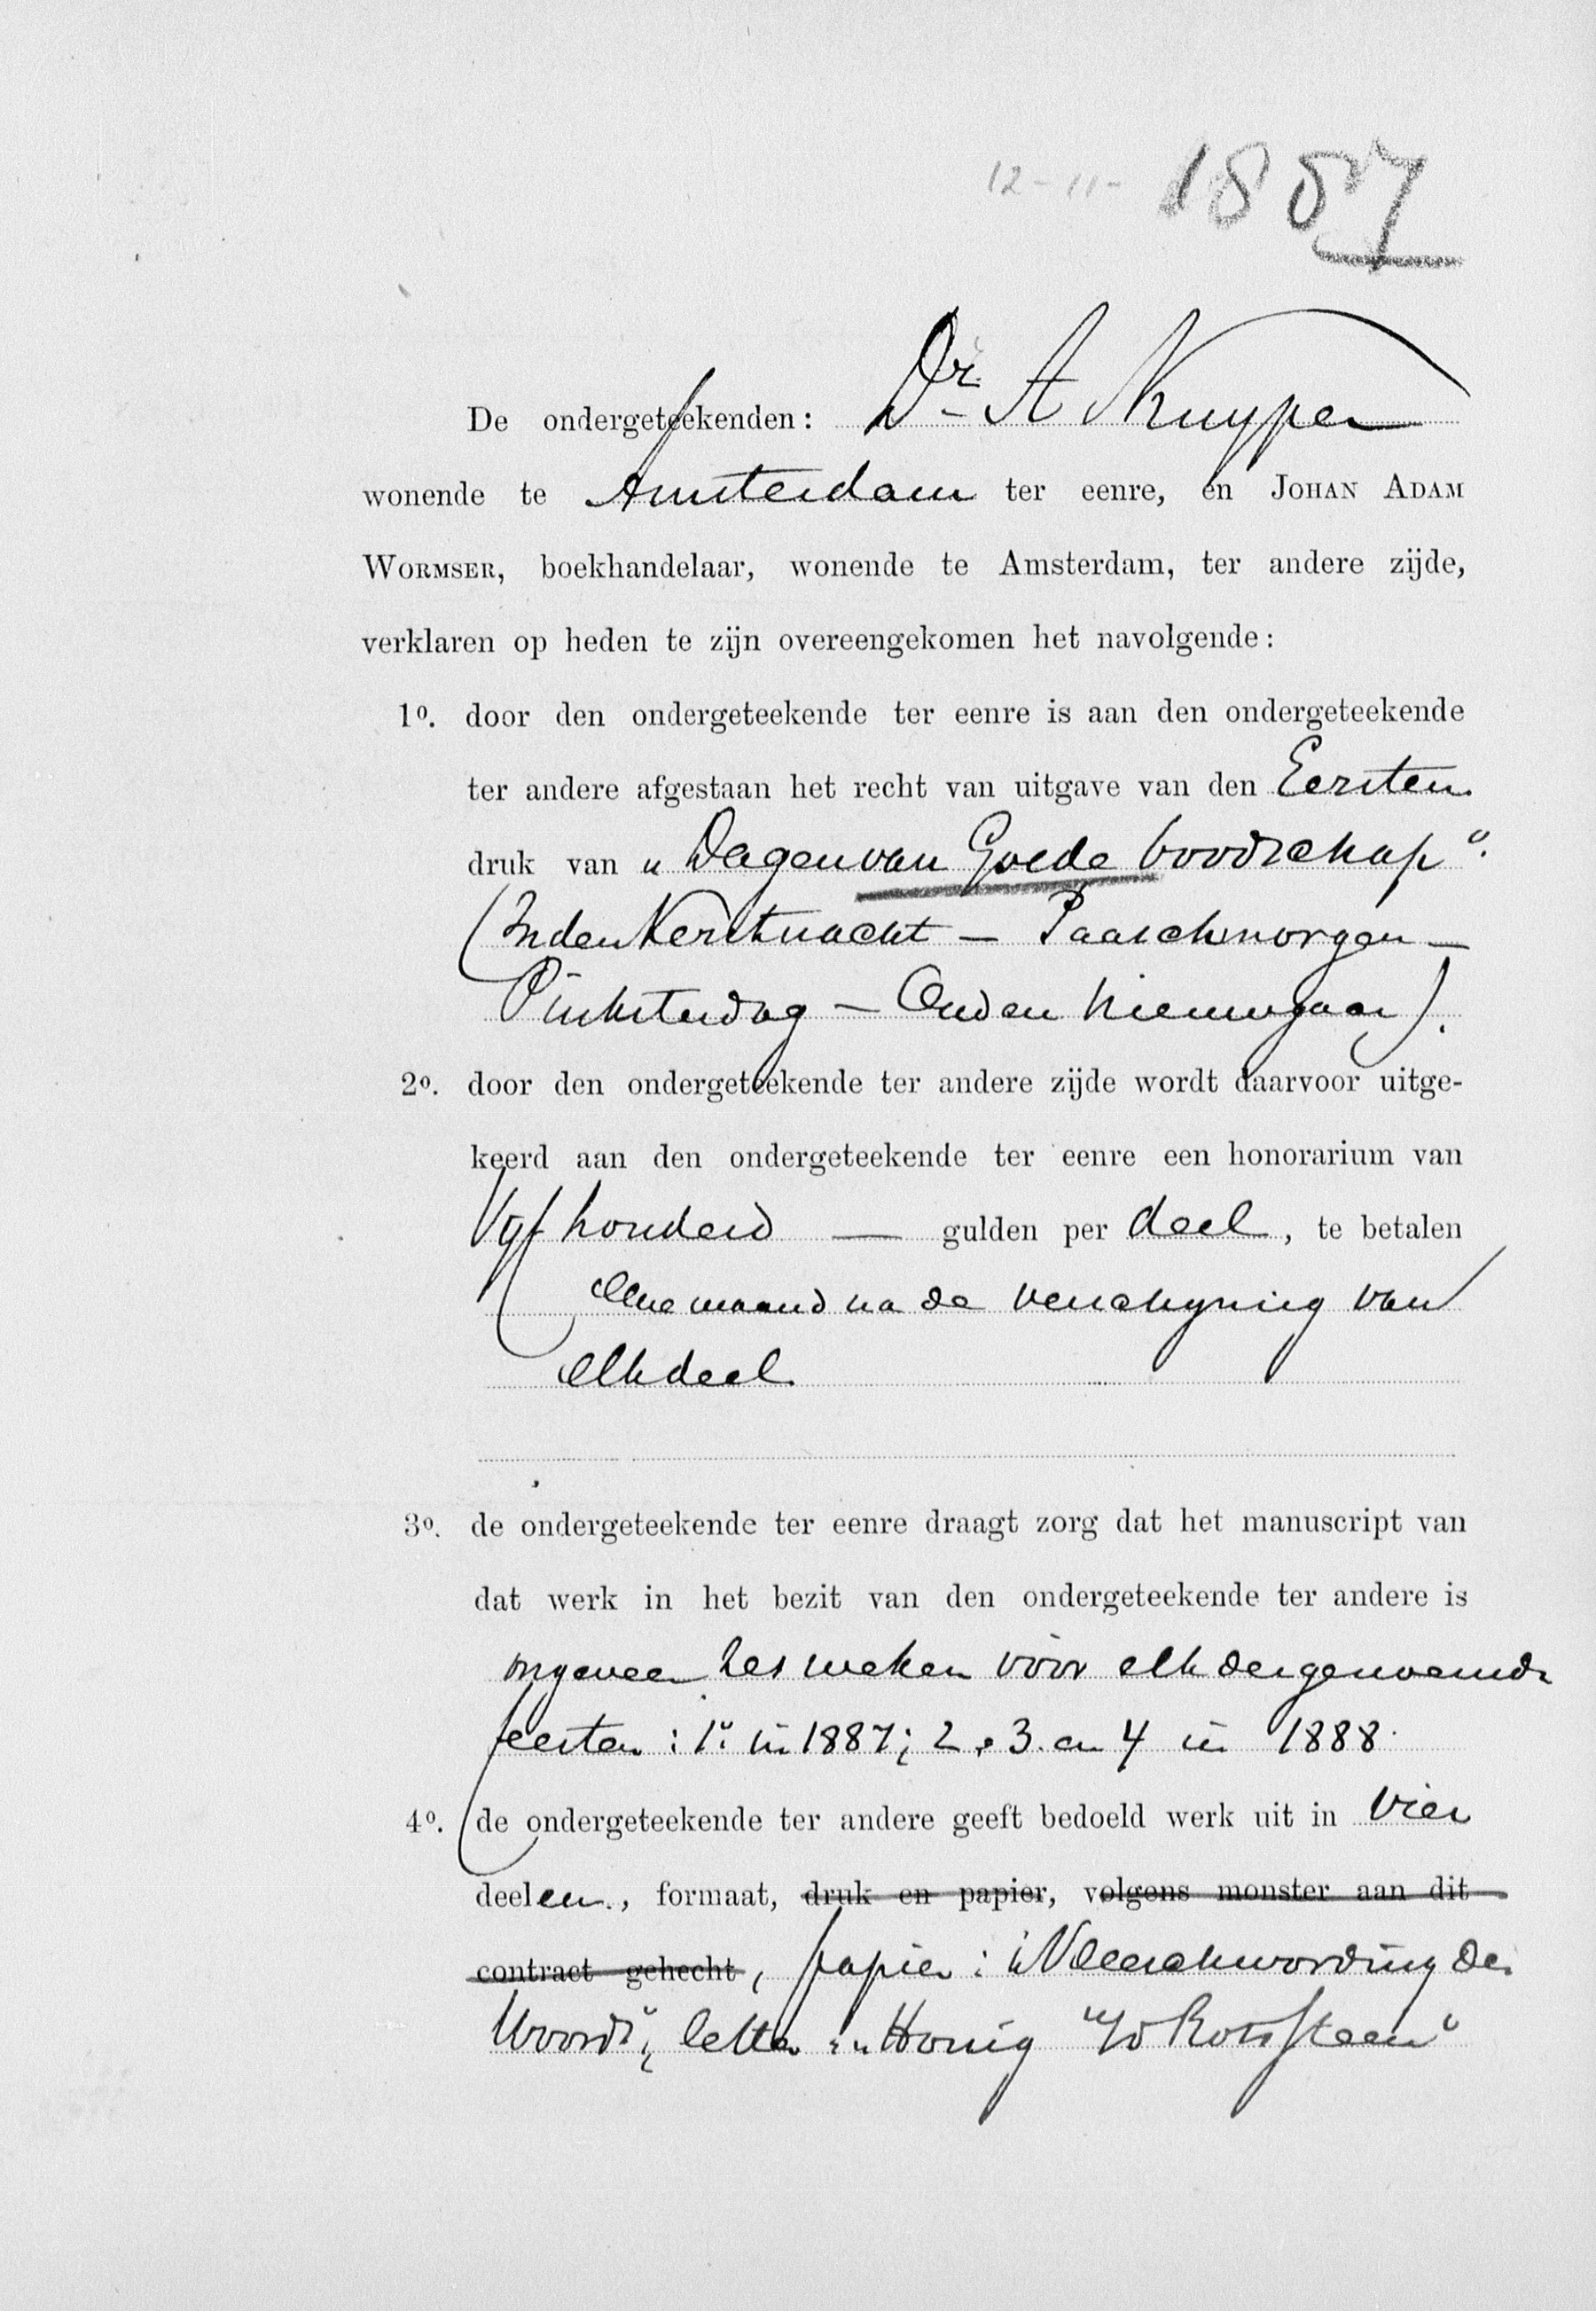 12-11- 1887
De ondergeteekenden: Dr. A Kuyper
wonende te Amsterdam ter eenre, en JOHAN ADAM
WORMSER, boekhandelaar, wonende te Amsterdam, ter andere zijde,
verklaren op heden te zijn overeengekomen het navolgende:
1o. door den ondergeteekende ter eenre is aan den ondergeteekende
ter andere afgestaan het recht van uitgave van den Eersten
druk van „Dagen van Goede boodschap".
(In den Kerstnacht – Paaschmorgen –
Pinksterdag – Oud en Nieuwjaar).
2o. door den ondergeteekende ter andere zijde wordt daarvoor uitge-
keerd aan den ondergeteekende ter eenre een honorarium van
Vijf honderd — gulden per deel, te betalen
eene maand na de verschijning van
elk deel.
3o. de ondergeteekende ter eenre draagt zorg dat het manuscript van
dat werk in het bezit van den ondergeteekende ter andere is
ongeveer zes weken vóór elk der genoemde
feesten: 1o. in 1887; 2, 3. en 4 in 1888.
4o. de ondergeteekende ter andere geeft bedoeld werk uit in vier
deelen., formaat, druk en papier, volgens monster aan dit
contract gehecht, papier: „Vleeschwording des
Woords", letter: „Honig Rotssteen"